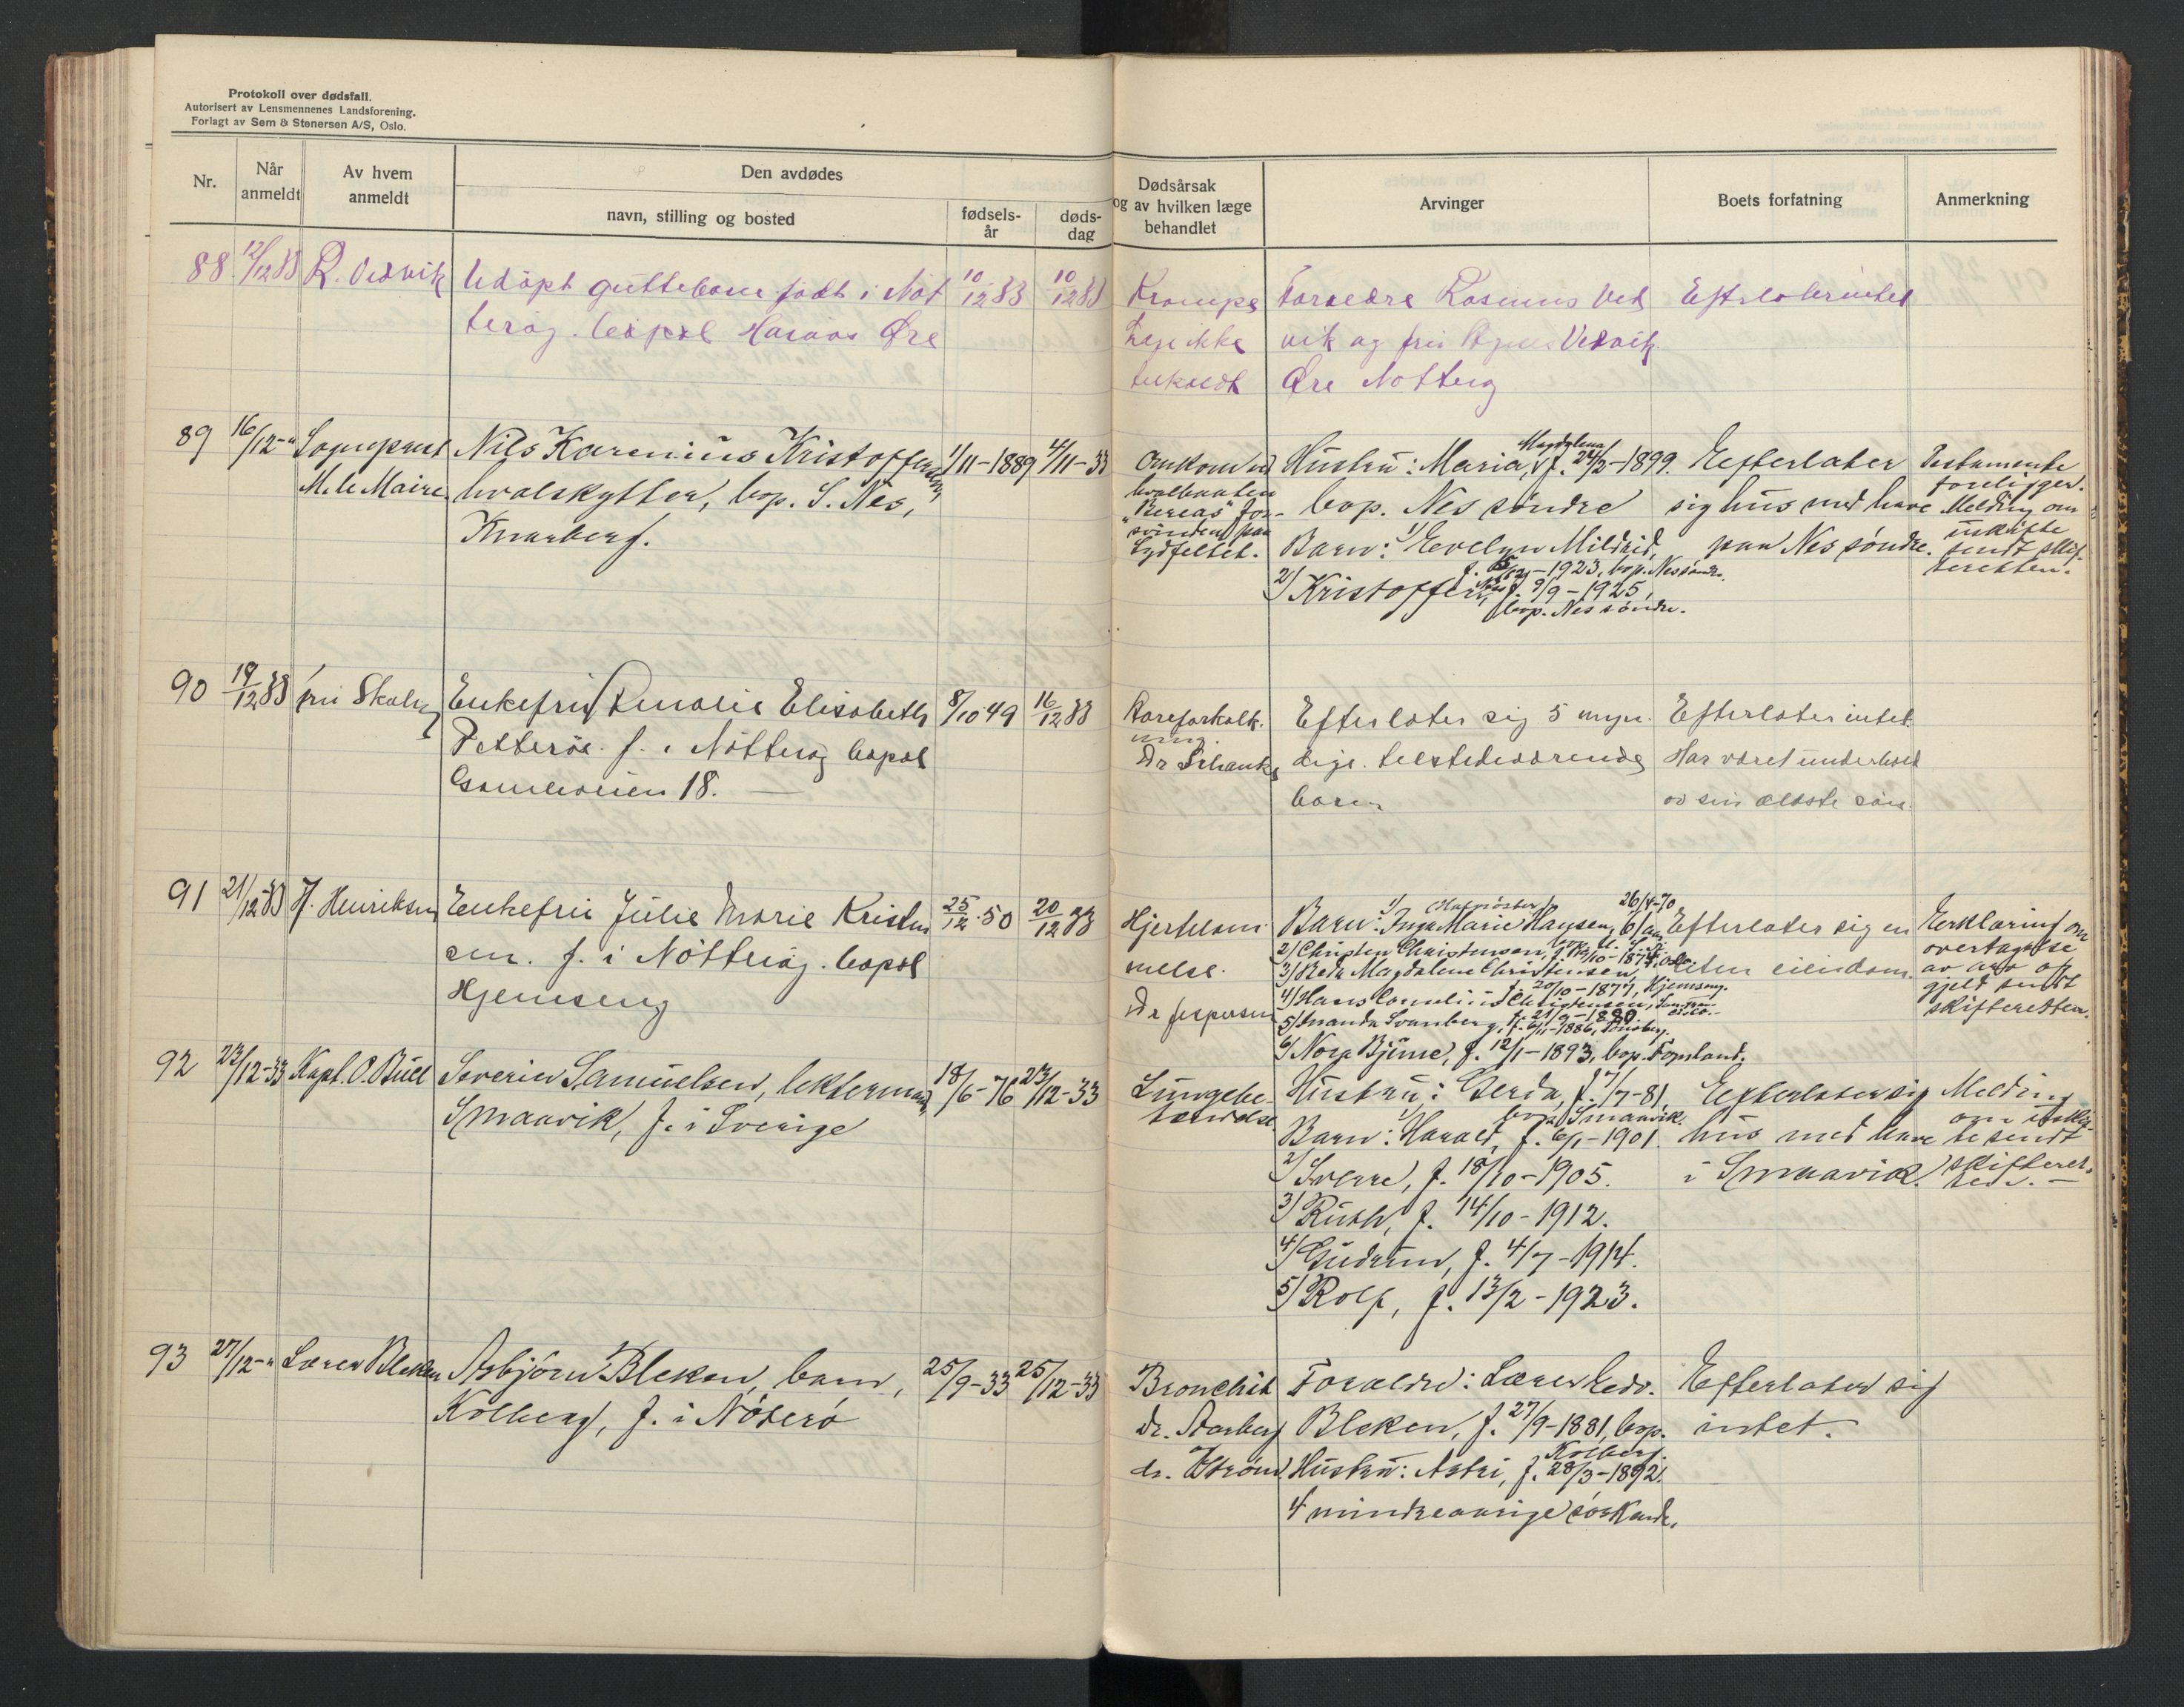 Protokoll over dødsfall.
Autorisert av Lensmennenes Landsforening.
Forlagt av Sem & Stenersen A/S, Oslo.
Nr.
Når
anmeldt
Av hvem
anmeldt
Den avdødes
navn, stilling og bosted
fødsels-
år
døds-
dag
Dødsårsak
og av hvilken læge
behandlet
Arvinger
Boets forfatning
Anmerkning
88 12/12 33 R. Vedvik Udøpt guttebarn født i Nøt 10/12 33 10/12 33
terøy. bopæl Øre
Krampe
Læge ikke
tilkaldt
Forældre Rasmus Ved
vik og fru Vedvik
Øre Nøtterøy
Efterlater intet
89 16/12-" Sogneprest Nils Karenius Kristoffersen, 1/11-1889 4/11-33
M. le Maire hvalskytter, bop. S. Nes,
Knarberg.
Omkom ved
hvalbaaten
for-
svinden paa
Sydfeltet.
Hustru: Maria Magdalena, f. 24/2-1899.
bop. Nes søndre
Barn: 1/ Evelyn Mildrid,
f. -1923, bop. Nes søndre.
2/ Kristoffer f. 9/9-1925,
bop. Nes søndre.
Efterlater
sig hus med have
paa Nes søndre.
Testamente
foreligger.
Melding om
uskifte
sendt skif-
teretten.
90 19/12 33 fru Skaln Enkefru Elisabeth 8/10 49 16/12 33
Petterøe. f. i Nøtterøy bopæl
18.
Aareforkalk-
ning.
Dr Schanke
Efterlater sig 5 myn-
dige tilstedeværende
barn
Efterlater intet.
Har været underholdt
av sin ældste søn.
91 21/12-33 H. Henriksen Enkefru Julie Marie Kristen 25/12 50 20/12 33
sen. f. i Nøtterøy. bopæl
Hjemseng
Hjertelam
melse.
Dr Jespersen
Barn: 1/ Inga Marie Hansen, 26/4-70
2/ Christen Christensen, f. 10-1874, Oslo.
3/ Magdalene Christensen,
f. 20/10-1877, Hjemseng.
4/ Hans Cornelius Christensen, San Fran-
cisco. f. 21/9-1880.
5/ Amanda Svanberg, f. 6/11-1886, Tønsberg.
6/ Nora Bjune, f. 12/1-1893, bop. Fopsland.
Efterlater sig en
liten eiendom.
Erklæring om
overtagelse
av arv og
gjeld sendt
skifteretten.
92 23/12-33 Kapt. O. Buer Severin Samuelsen, lektermand, 18/6-76 23/12-33
Smaavik, f. i Sverige
Lungebe-
tændelse
Hustru: Gerda, f. 7/7-81,
bop. Smaavik.
Barn: 1/ Harald, f. 6/1-1901.
2/ Sverre, f. 18/10-1905.
3/ Ruth, f. 14/10-1912.
4/ Gudrun, f. 4/7-1914.
5/ Rolf, f. 13/2-1923.
Efterlater sig
hus med have
i Smaavik.
Melding
om uskif-
te sendt
skifteret-
ten. —
93 27/12-" Lærer Bleken Asbjørn Bleken, barn, 25/9-33 25/12-33
Kolberg, f. i Nøterø
Bronchit
Dr. Storberg
dr. Strøm
Forældre: Lærer Edv.
Bleken, f. 27/9-1881, bop.
Kolberg.
Hustru: Astri, f. 28/3-1892.
4 mindreaarige søskende.
Efterlater sig
intet.